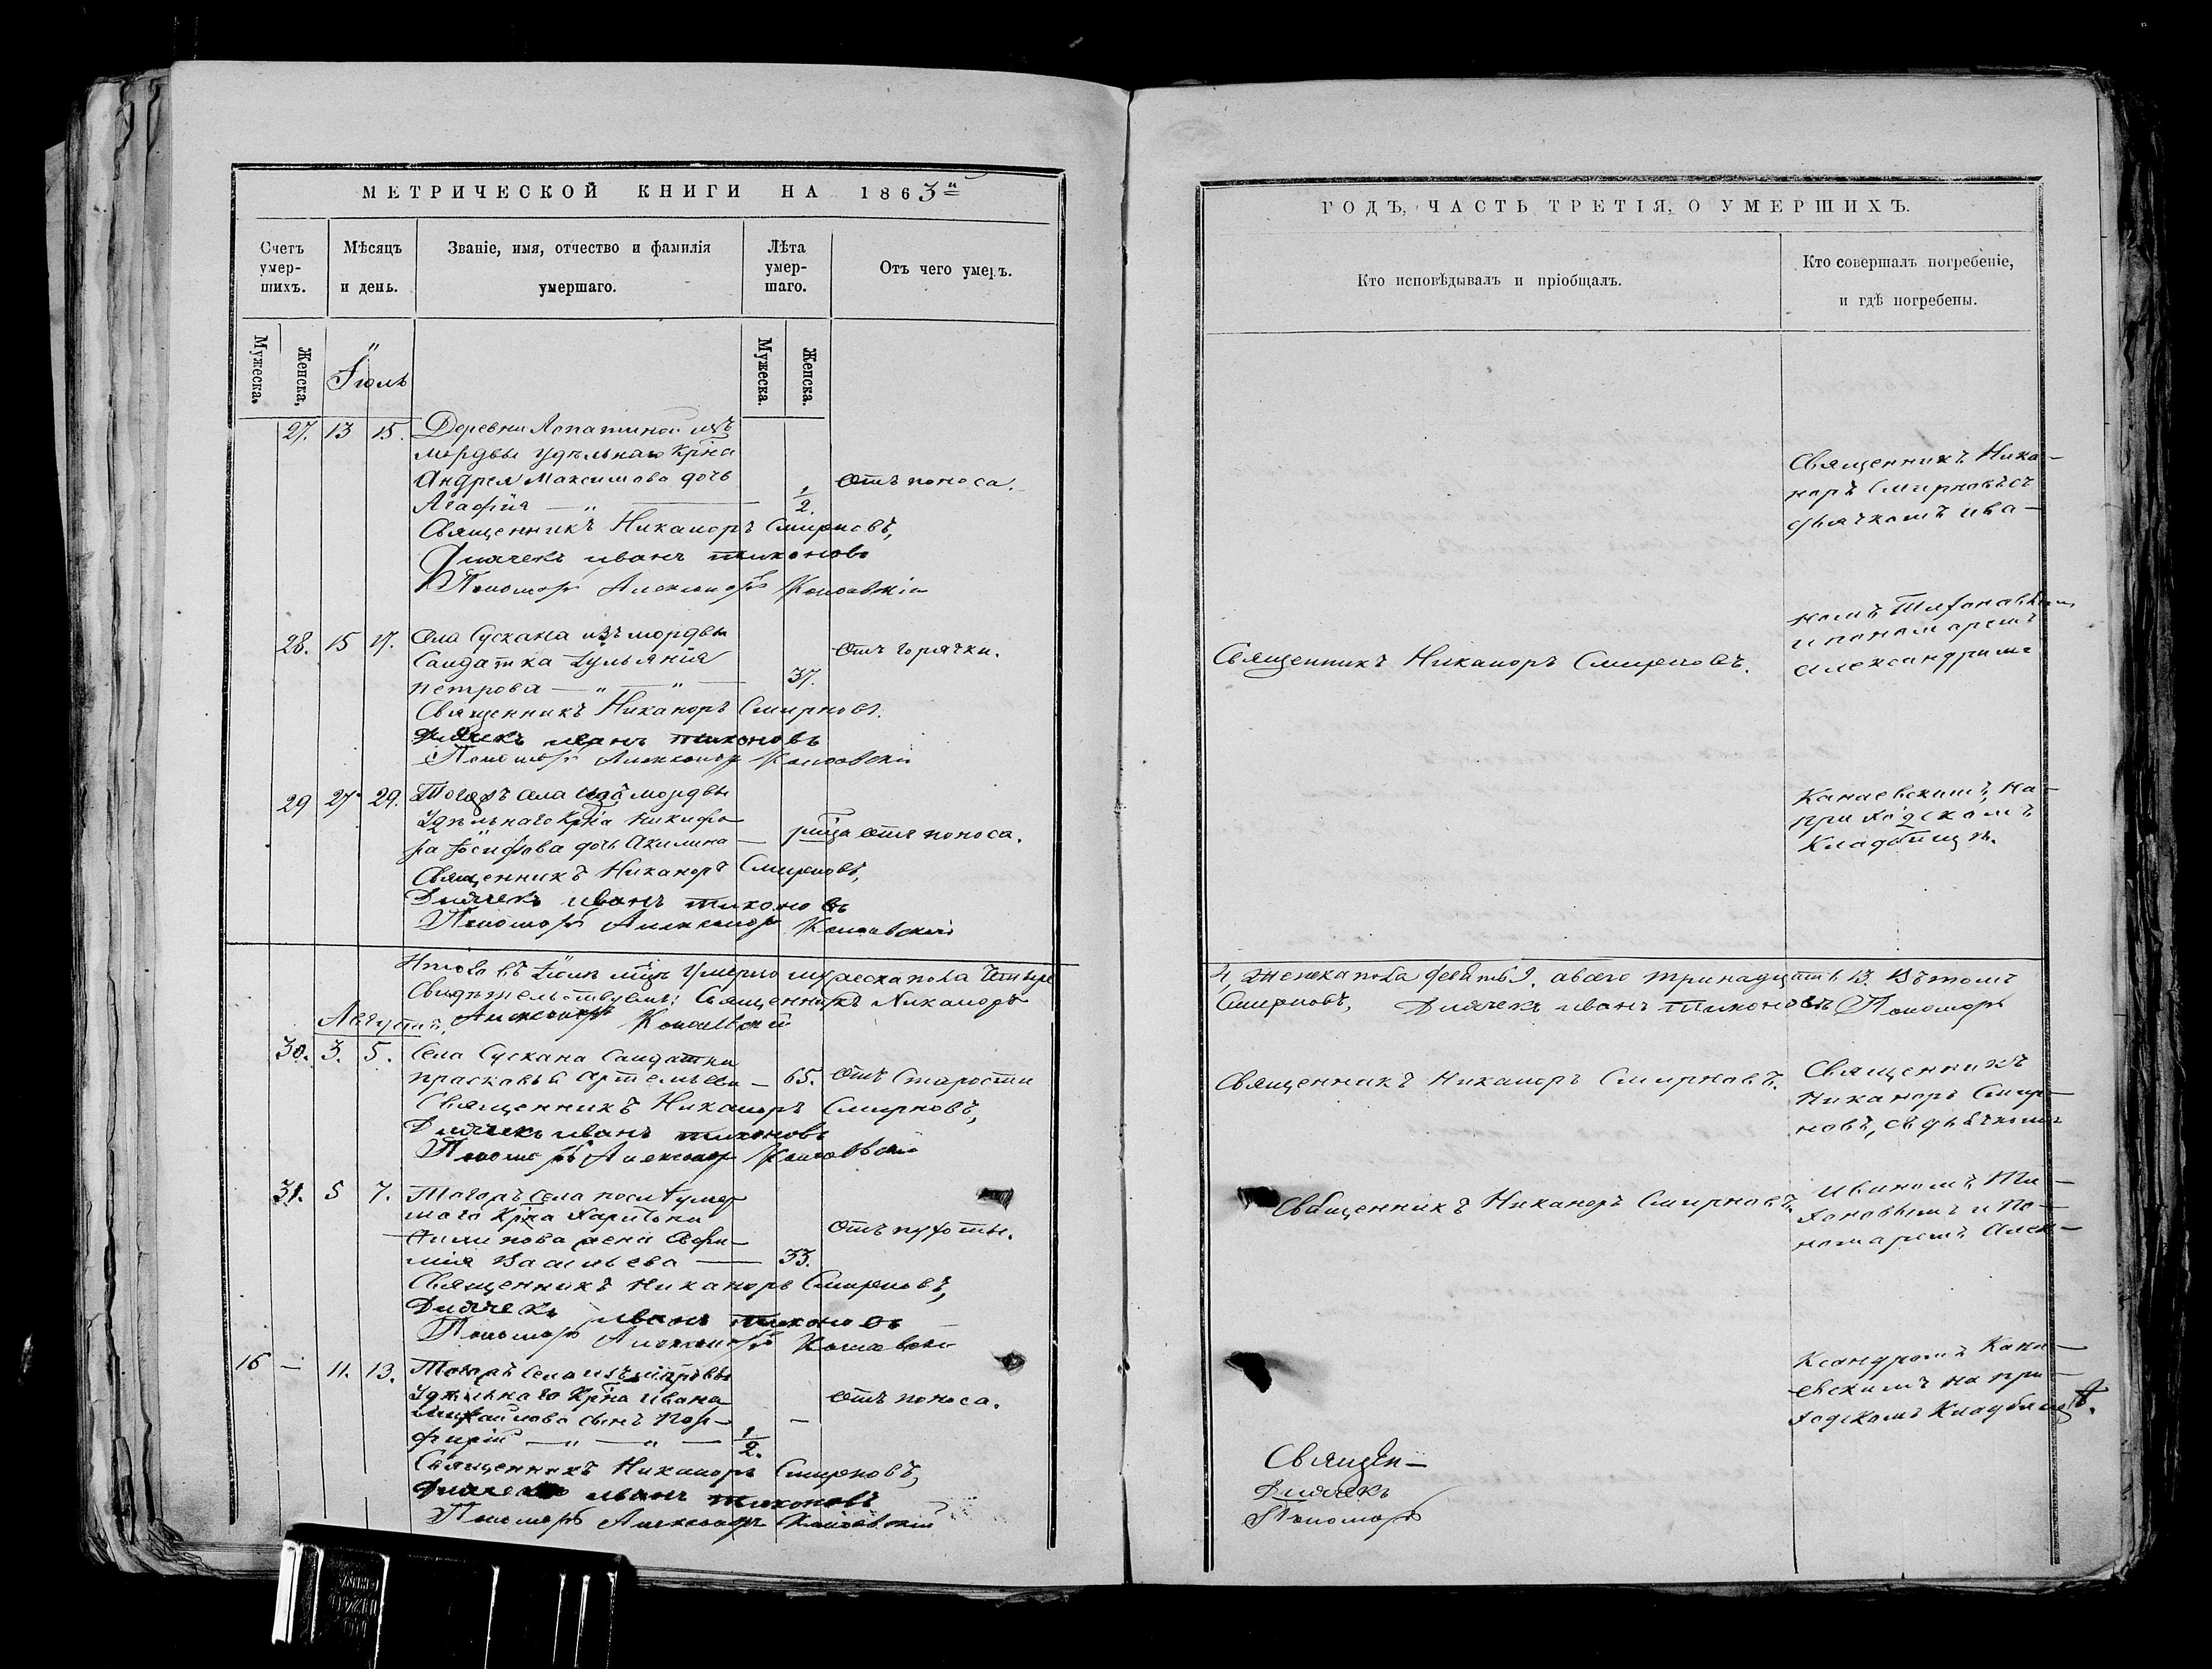 МЕТРИЧЕСКОЙ КНИГИ НА 1863й
Счетъ умер-шихъ.
Мѣсяцъ и день.
Званіе, имя, отчество и фамилія умершаго.
Лѣта умер-шаго.
Отъ чего умеръ.
Мужеска.
Женска.
Іюль
Мужеска.
Женска.
27. 13 15. Деревни Лопатиной изъ
мордвы удѣльнаго Крна
Андрея Максимова дочь
Агафія — " — 1/2. Отъ поноса.
Священникъ Никаноръ Смирновъ,
Дьячекъ иванъ тихоновъ
Пономарь Александръ Канаевскій
28. 15 17. Села Сускана изъ мордвы
Салдатка Іульянія
петрова — " — " — 37. Отъ горячки.
Священникъ Никаноръ Смирновъ.
Дьячекъ иванъ тихоновъ
Пономарь Александръ Канаевскій
29 27 29. Тогожъ села изъ мордвы
Удѣльнаго Крна Никифо-
ра Іосифова дочь Акилина — отъ поноса.
Священникъ Никаноръ Смирновъ,
Дьячекъ иванъ тихоновъ
Пономарь Александръ Канаевскій
Итого въ Іюлѣ мцѣ умерло мужеска пола Четыре
Свидѣтельствуемъ: Священникъ Никаноръ
Александръ Канаевскій
Августъ.
30. 3. 5. Села Сускана Салдатки
прасковьи Артемьева — 65. Отъ Старости
Священникъ Никаноръ Смирновъ,
Дьячекъ иванъ тихоновъ
Пономарь Александръ Канаевскій
31. 5 7. Тогожъ Села послѣ умер-
шаго Крна Харитона
Филипова жена Евфи-
мія Васильева — 33. Отъ пухоты.
Священникъ Никаноръ Смирновъ,
Дьячекъ иванъ тихоновъ
Пономарь Александръ Канаевскій
16 — 11. 13. Тогожъ Села изъ мордвы
Удѣльнаго Крна Ивана
Михайлова сынъ Пор-
фирій — " — " — 1/2. — Отъ поноса.
Священникъ Никаноръ Смирновъ,
Дьячекъ иванъ тихоновъ
Пономарь Александръ Канаевскій
ГОДЪ, ЧАСТЬ ТРЕТІЯ, О УМЕРШИХЪ.
Кто исповѣдывалъ и пріобщалъ.
Кто совершалъ погребеніе, и гдѣ погребены.
Священникъ Ника-
норъ Смирновъ съ
дьячкомъ ива-
номъ Тихоновымъ
и пономаремъ
Александромъ
Священникъ Никаноръ Смирновъ.
Канаевскимъ, на
приходскомъ
Кладбищѣ.
4, Женска пола девять 9. а всего тринадцать 13. Въ томъ
Смирновъ, Дьячекъ иванъ тихоновъ Пономарь
Священникъ Никаноръ Смирновъ.
Священникъ
Никаноръ Смир-
новъ, съ дьячкомъ
Священникъ Никаноръ Смирновъ.
Иваномъ Ти-
хоновымъ и По-
номаремъ Алек-
ксандромъ Кана-
евскимъ на при-
ходскомъ Кладбищѣ.
Священ-
Дьячекъ
Пономарь